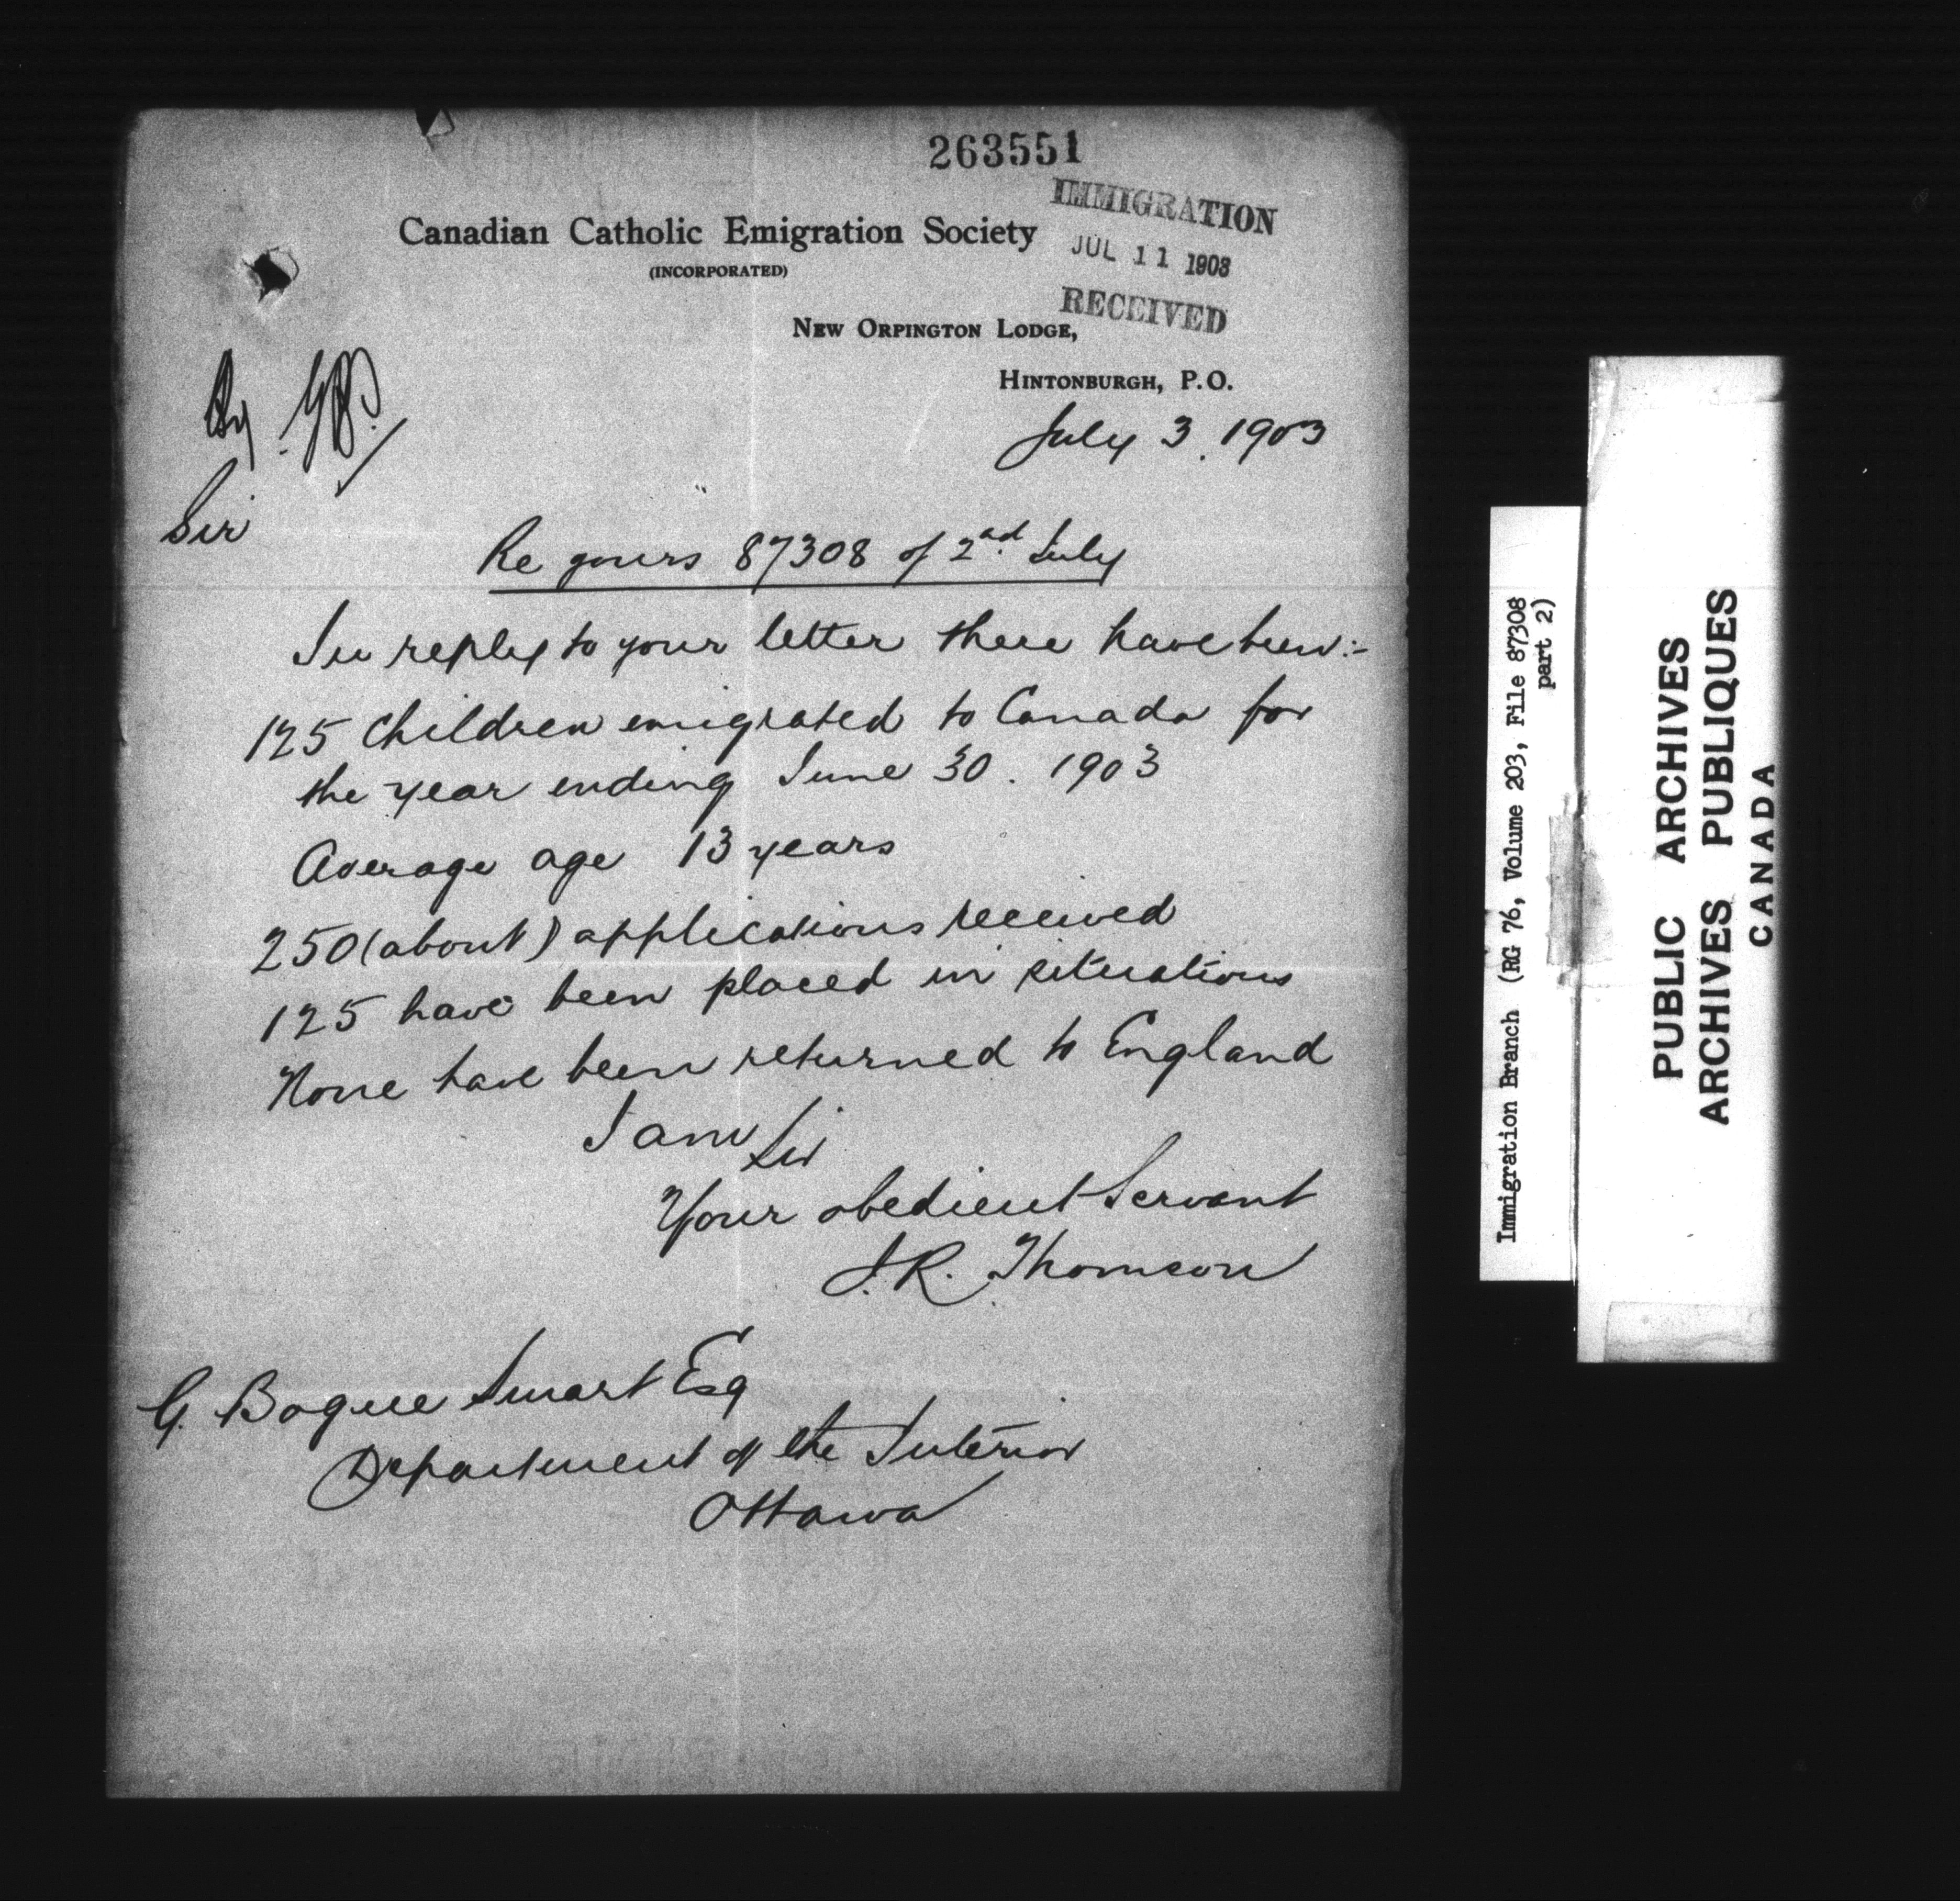 263551
IMMIGRATION
JUL 11 1903
RECEIVED
Canadian Catholic Emigration Society
(INCORPORATED)
NEW ORPINGTON LODGE,
HINTONBURGH, P.O.
July 3. 1903
Sir
Re yours 87308 of 2nd July
In reply to your letter there have been:-
125 Children emigrated to Canada for
the year ending June 30. 1903
Average age 13 years
250 (about) applications received
125 have been placed in situations
None have been returned to England
I am Sir
Your obedient Servant
J.R. Thomson
G. Bogue Smart Esq
Department of the Interior
Ottawa
Immigration Branch (RG 76, Volume 203, File 87308
part 2)
PUBLIC ARCHIVES
ARCHIVES PUBLIQUES
CANADA